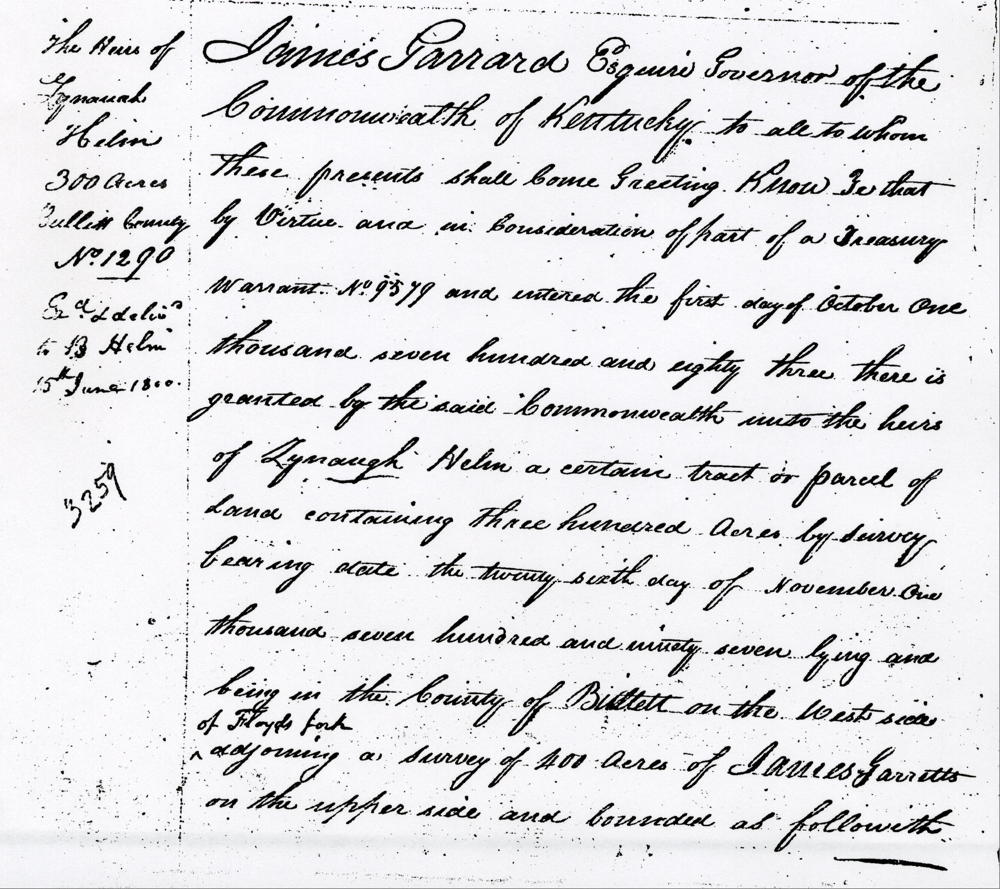 The Heirs of
Zynaugh
Helm
300 Acres
Bullitt County
No. 1290
Exd. & delivd
to B Helm
15th June 1800.
3259
James Garrard Esquire Governor of the
Commonwealth of Kentucky to all to whom
these presents shall Come Greeting. Know Ye that
by Virtue and in Consideration of part of a Treasury
Warrant No. 9579 and entered the first day of October One
thousand seven hundred and eighty three there is
granted by the said Commonwealth unto the heirs
of Zynaugh Helm a certain tract or parcel of
Land containing three hundred Acres by survey
bearing date the twenty sixth day of November One
thousand seven hundred and ninety seven lying and
being in the County of Bullett on the West side
of Floyds fork
^ adjoining a survey of 400 Acres of James Garretts
on the upper side and bounded as followith